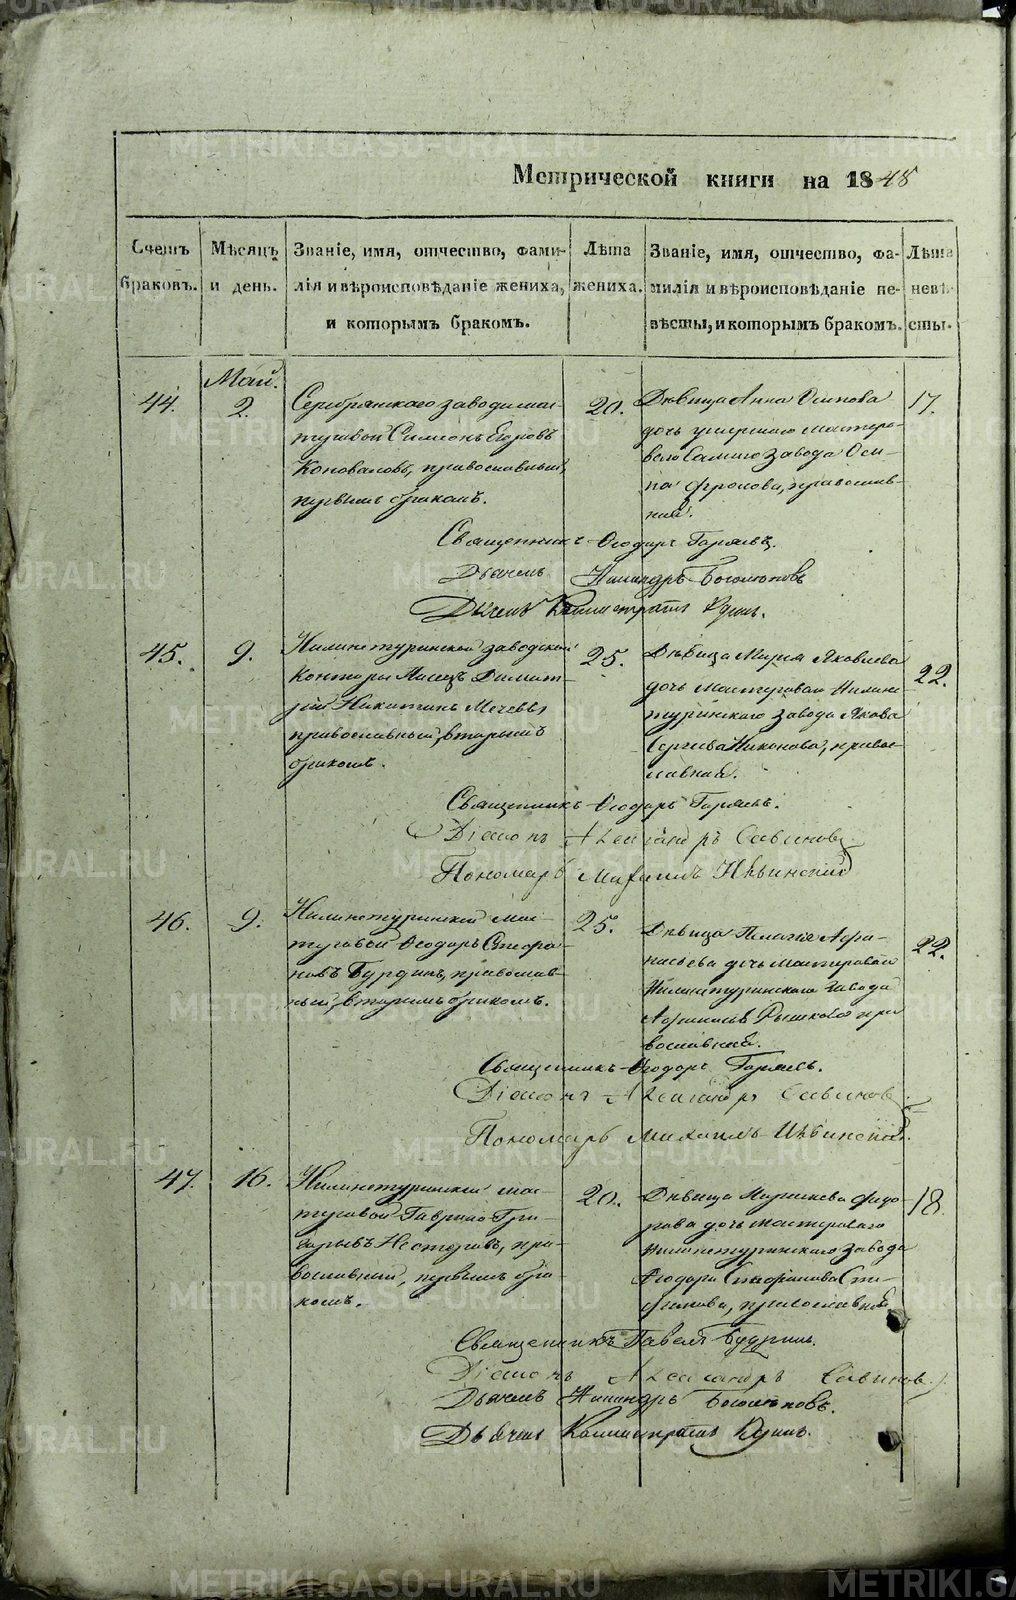 METRIKI.GASO-URAL.RU
Метрической книги на 1848
Счетъ браковъ.
Мѣсяцъ и день.
Званіе, имя, отчество, фами-
лія и вѣроисповѣданіе жениха,
и которымъ бракомъ.
Лѣта
жениха.
Званіе, имя, отчество, фа-
милія и вѣроисповѣданіе не-
вѣсты, и которымъ бракомъ.
Лѣта
невѣ-
сты.
Май.
44.
2.
Серебрянскаго завода мас-
теровой Симеонъ Егоровъ
Коноваловъ, православный,
первымъ бракомъ.
20.
Дѣвица Анна Осипова
дочь умершаго мастеро-
ваго завода Оси-
па Фролова, православ-
ная.
17.
Священникъ Ѳеодоръ
Дьячекъ Никандръ Боголюповъ
Дьячекъ Каллистратъ
45.
9.
Нижнетуринской заводской
Конторы Писецъ Димит-
рій Никитинъ Мечевъ,
православный, вторымъ
бракомъ.
25.
Дѣвица Марія Яковлева
дочь мастероваго Нижне-
туринскаго завода Якова
Сергѣева Никонова, право-
славная.
22.
Священникъ Ѳеодоръ
Діаконъ Александръ Савиновъ
Пономарь Михаилъ
46.
9.
Нижнетуринскій мас-
теровой Ѳеодоръ Стефа-
новъ Бурдинъ, православ-
ный, вторымъ бракомъ.
25.
Дѣвица Пелагія Афа-
насьева дочь мастероваго
Нижнетуринскаго завода
пра
вославная.
22.
Священникъ Ѳеодоръ
Діаконъ Александръ Савиновъ
Пономарь Михаилъ
47.
16.
Нижнетуринскій мас-
теровой Гаврило Гри-
горьевъ Несторовъ, пра-
вославный, первымъ бра-
комъ.
20.
Дѣвица Ѳедо-
рова дочь мастероваго
Нижнетуринскаго завода
Ѳеодора Стефанова Сте-
фанова, православная
18.
Священникъ Павелъ Будринъ.
Діаконъ Александръ Савиновъ.
Дьячекъ Никандръ Боголюповъ.
Дьячекъ Каллистратъ